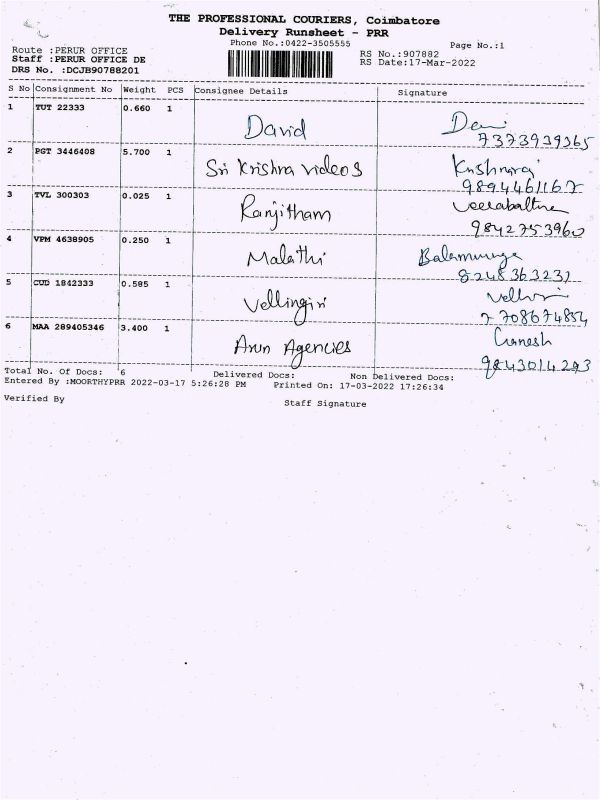 THE PROFESSIONAL COURIERS, Coimbatore
Delivery Runsheet - PRR
Phone No.:0422-3505555
Page No.:1
Route :PERUR OFFICE
RS No.:907882
Staff :PERUR OFFICE DE
RS Date:17-Mar-2022
DRS No. :DCJB90788201
S No Consignment No Weight PCS Consignee Details Signature
1 TUT 22333 0.660 1 David
7373939365
2 PGT 3446408 5.700 1 Sri Krishna videos Krishnaraj
9894461167
3 TVL 300303 0.025 1 Ranjitham
9842753960
4 VPM 4638905 0.250 1 Malathi Balamuruga
8248363231
5 CUD 1842333 0.585 1 Vellingiri
7708674854
6 MAA 289405346 3.400 1 Arun Agencies Ganesh
9843014293
Total No. Of Docs: 6 Delivered Docs: Non Delivered Docs:
Entered By :MOORTHYPRR 2022-03-17 5:26:28 PM Printed On: 17-03-2022 17:26:34
Verified By Staff Signature